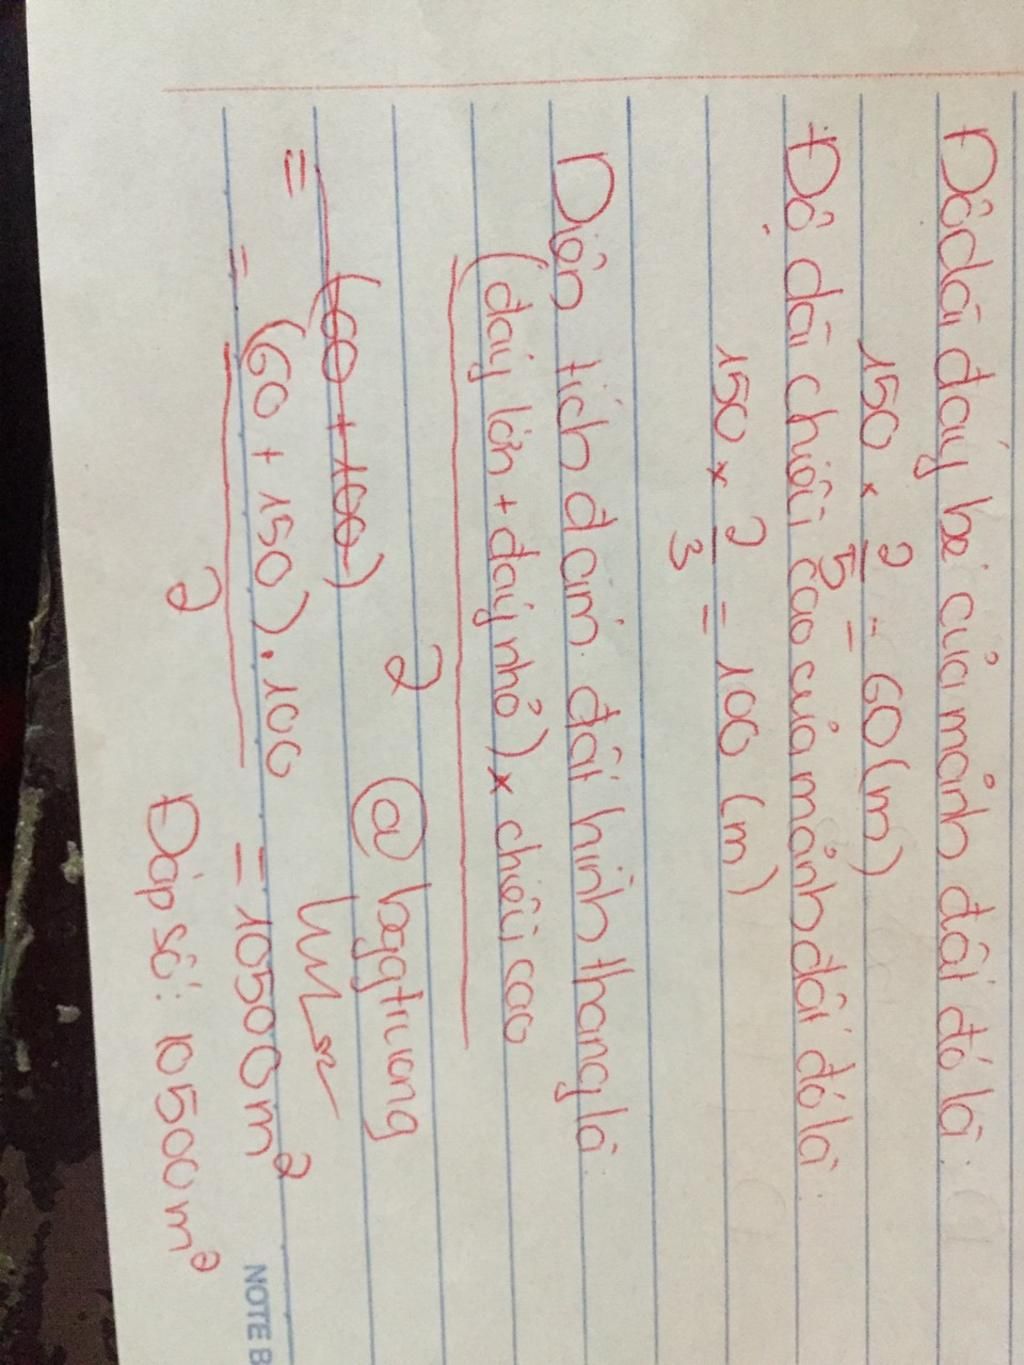 Độ dài đáy bé của mảnh đất đó là
150 × 2/5 = 60 (m)
Độ dài chiều cao của mảnh đất đó là
150 × 2/3 = 100 (m)
Diện tích đám đất hình thang là
(đáy lớn + đáy nhỏ) × chiều cao
2
= (60 + 100)
@ bggtruong
= (60 + 150).100 = 10500 m²
2
Đáp số: 10500 m²
NOTE B